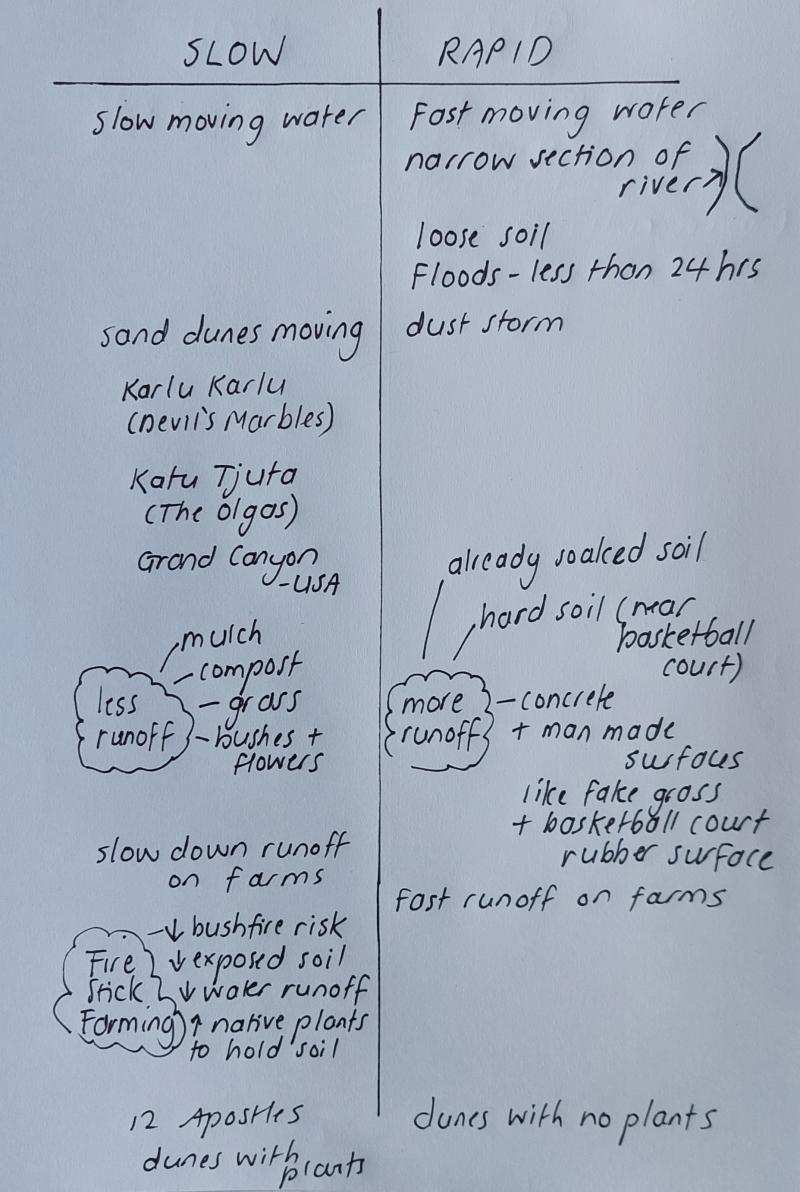 SLOW
slow moving water
sand dunes moving
Karlu Karlu
(Devil's Marbles)
Katu Tjuta
(The Olgas)
Grand Canyon
-USA
mulch
compost
less
runoff
- grass
- bushes +
flowers
slow down runoff
on farms
Fire
Stick
Farming
- ↓ bushfire risk
↓ exposed soil
↓ water runoff
↑ native plants
to hold soil
12 Apostles
dunes with
plants
RAPID
Fast moving water
narrow section of
river
loose soil
Floods - less than 24 hrs
dust storm
already soaked soil
hard soil (near
basketball
court)
more
runoff
- concrete
+ man made
surfaces
like fake grass
+ basketball court
rubber surface
fast runoff on farms
dunes with no plants